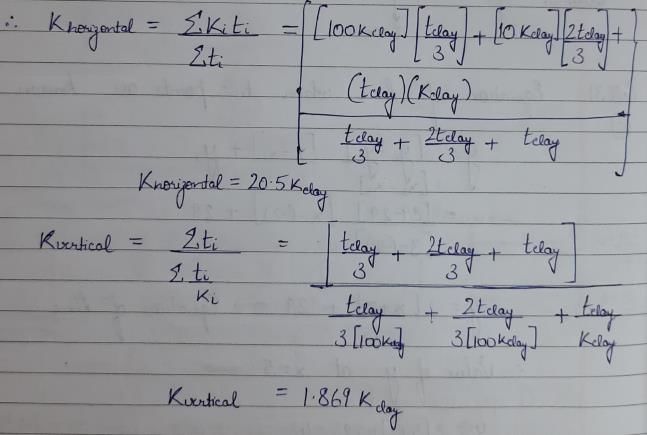 ∴ Khorizontal = ΣKiti / Σti = [ [100Kclay] [tclay/3] + [10Kclay] [2tclay/3] + (tclay)(Kclay) / tclay/3 + 2tclay/3 + tclay ]
Khorizontal = 20.5 Kclay
Kvertical = Σti / Σ ti/Ki = [ tclay/3 + 2tclay/3 + tclay ] / tclay/3[100Kclay] + 2tclay/3[100Kclay] + tclay/Kclay
Kvertical = 1.869 Kclay